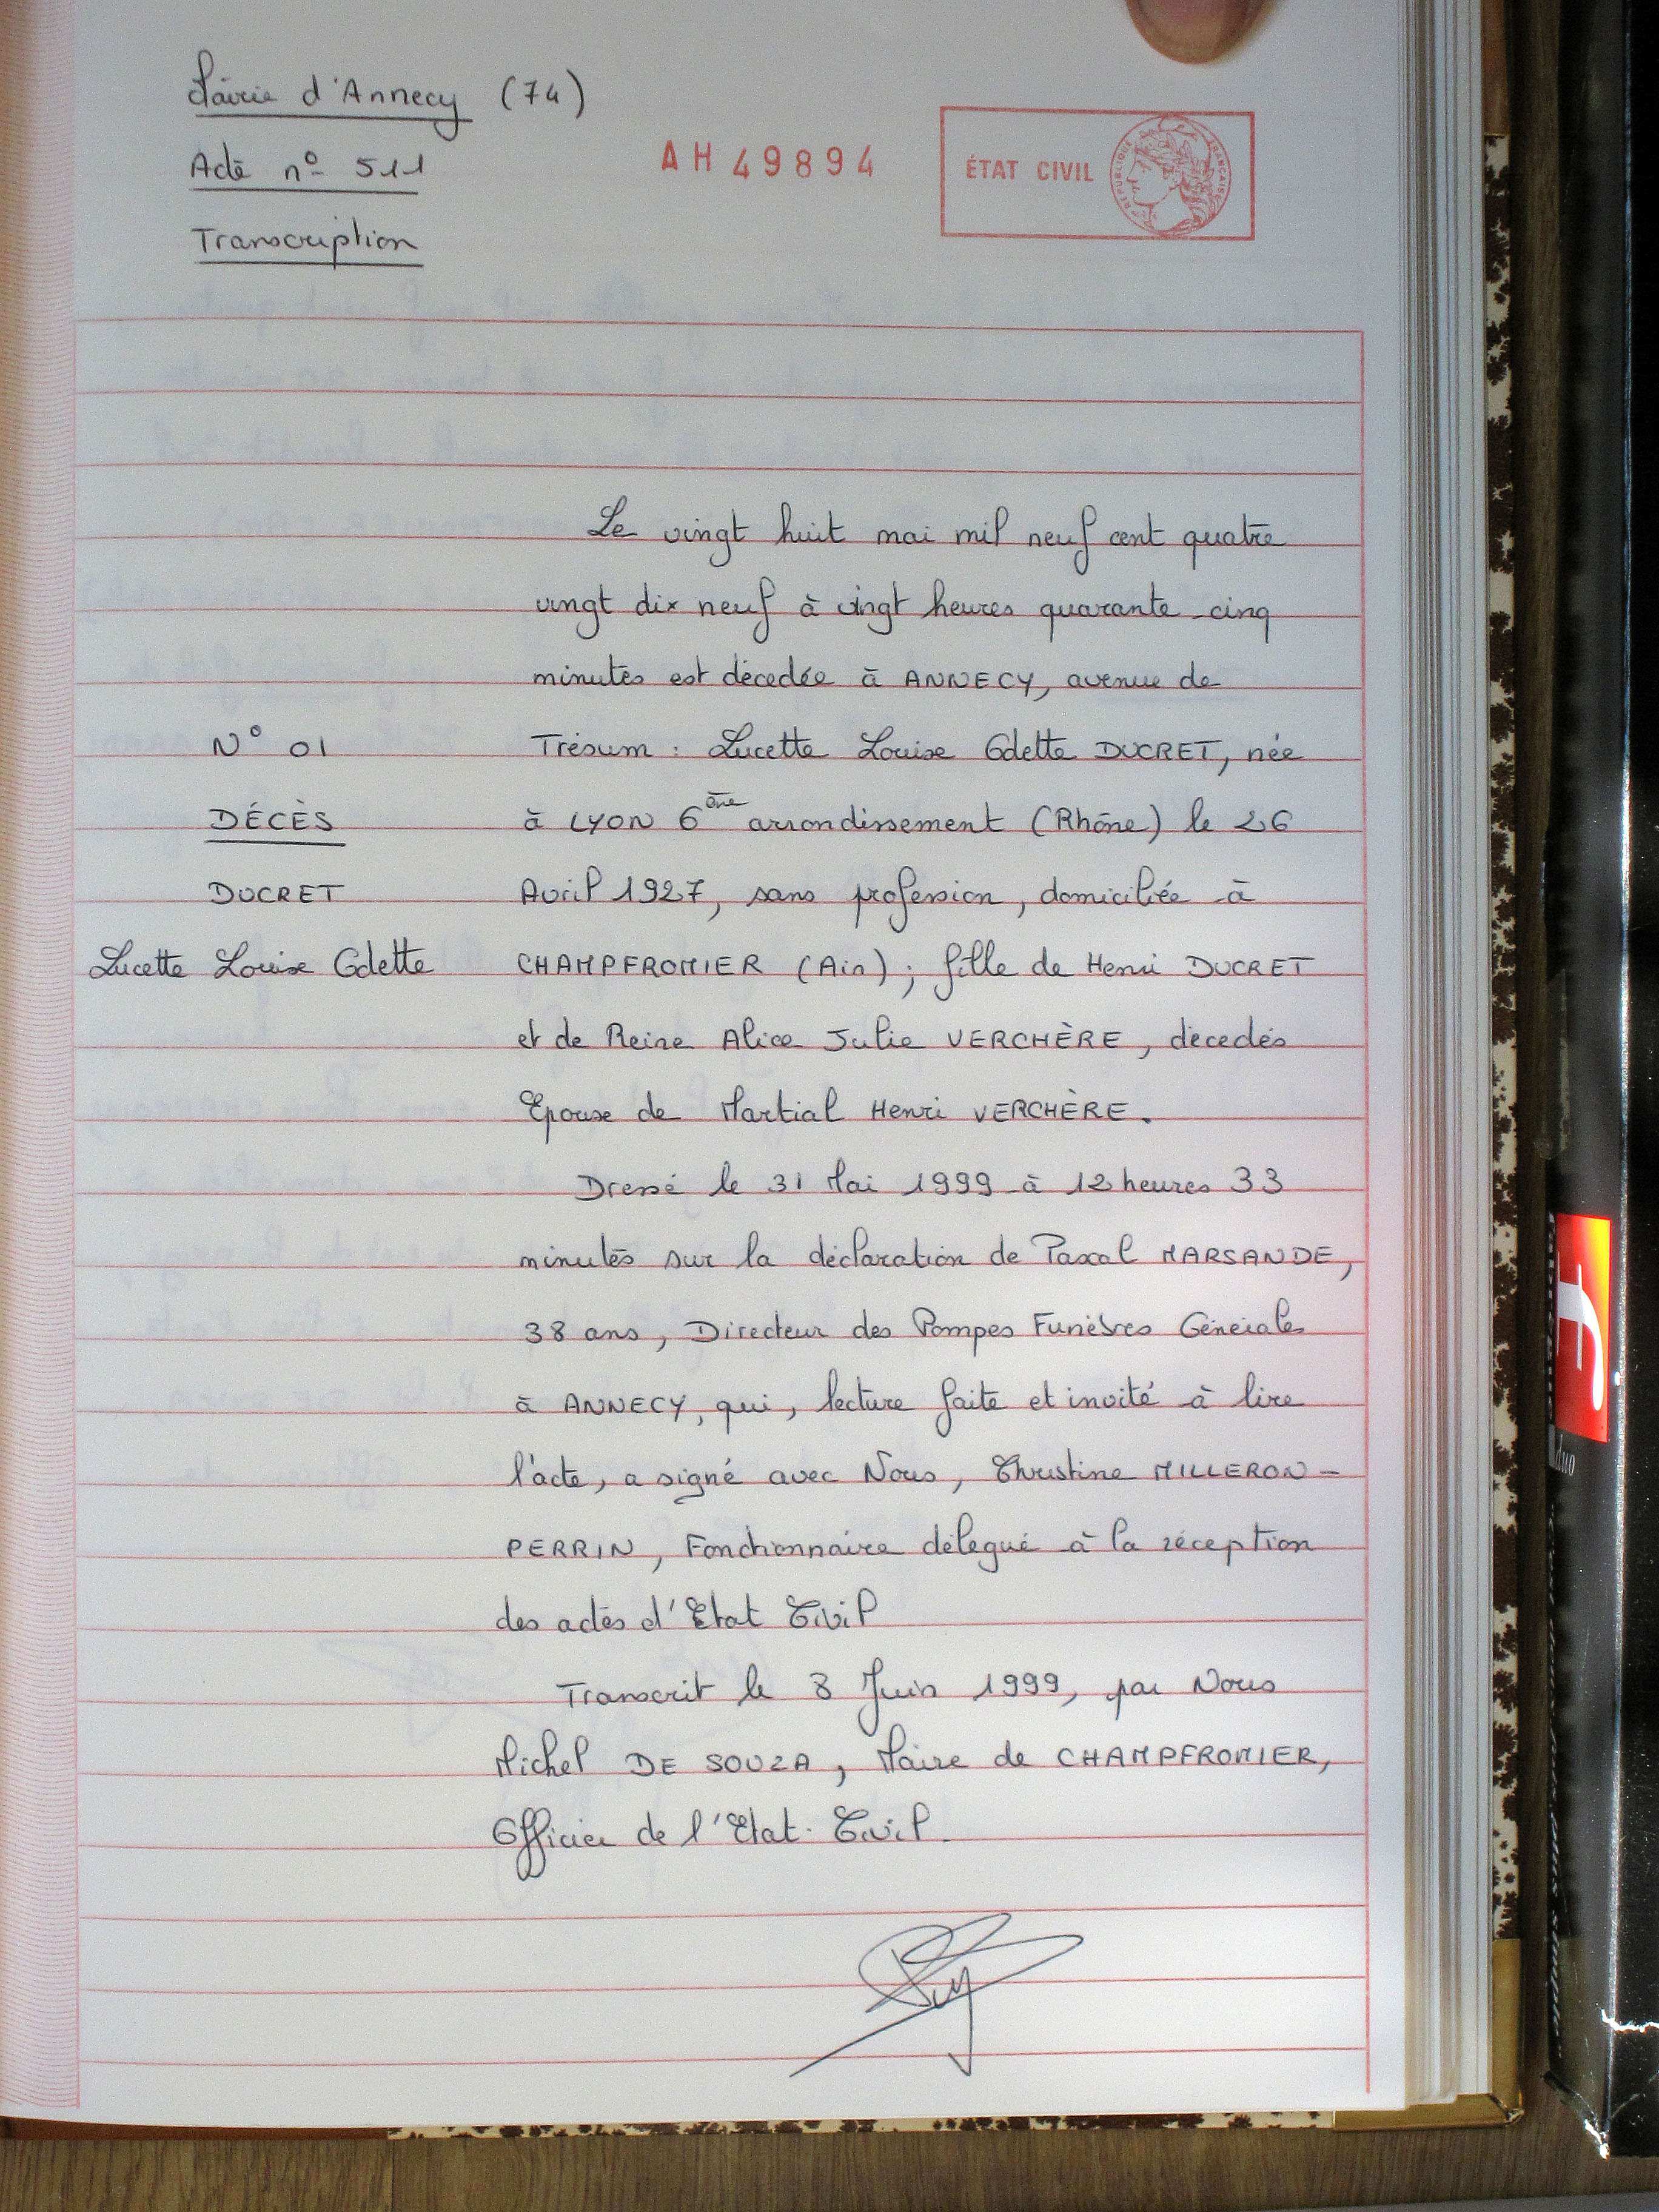 Mairie d'Annecy (74)
Acte n° 511
Transcription
AH 49894
ÉTAT CIVIL
RÉPUBLIQUE FRANÇAISE
Le vingt huit mai mil neuf cent quatre
vingt dix neuf à vingt heures quarante cinq
minutes est décédée à ANNECY, avenue de
N° 01
Trésum : Lucette Louise Odette DUCRET, née
DÉCÈS
à LYON 6ème arrondissement (Rhône) le 26
DUCRET
Avril 1927, sans profession, domiciliée à
Lucette Louise Odette
CHAMPFROMIER (Ain) ; fille de Henri DUCRET
et de Reine Alice Julie VERCHÈRE, décédés
Epouse de Martial Henri VERCHÈRE.
Dressé le 31 Mai 1999 à 12 heures 33
minutes sur la déclaration de Pascal MARSANDE,
38 ans, Directeur des Pompes Funèbres Générales
à ANNECY, qui, lecture faite et invité à lire
l'acte, a signé avec Nous, Christine MILLERON-
PERRIN, Fonctionnaire délégué à la réception
des actes d'Etat Civil
Transcrit le 8 Juin 1999, par Nous
Michel DE SOUZA, Maire de CHAMPFROMIER,
Officier de l'Etat Civil.
duo